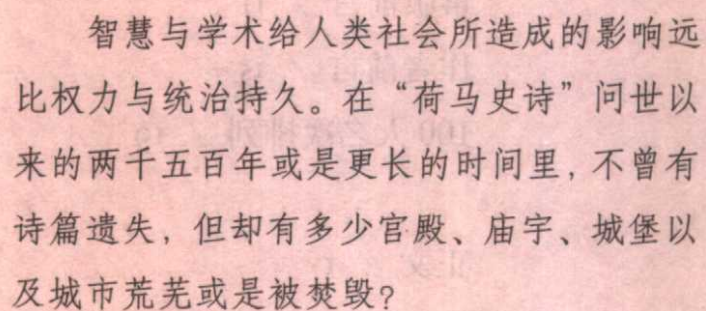 智慧与学术给人类社会所造成的影响远
比权力与统治持久。在“荷马史诗”问世以
来的两千五百年或是更长的时间里，不曾有
诗篇遗失，但却有多少宫殿、庙宇、城堡以
及城市荒芜或是被焚毁？